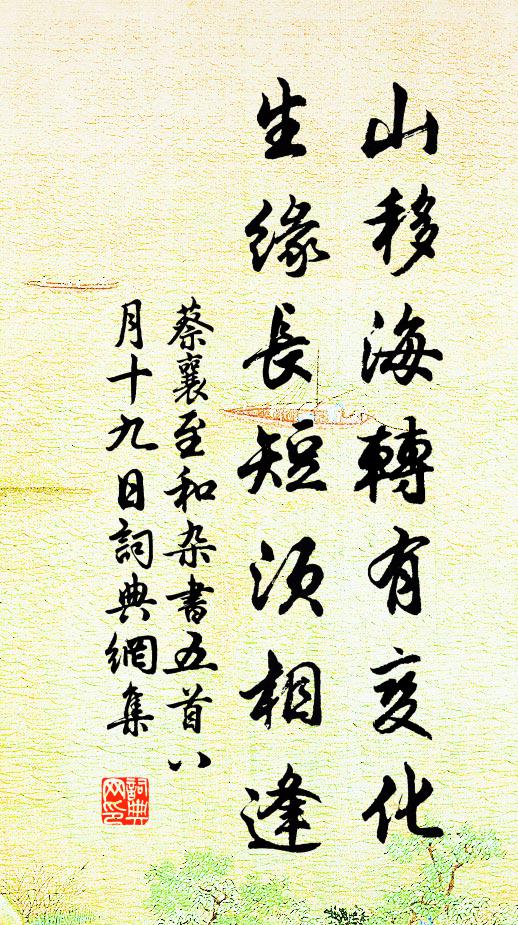 山移海轉有变化
生缘長短须相逢
蔡襄至和杂書五首八
月十九日詞典網集
詞典
网印